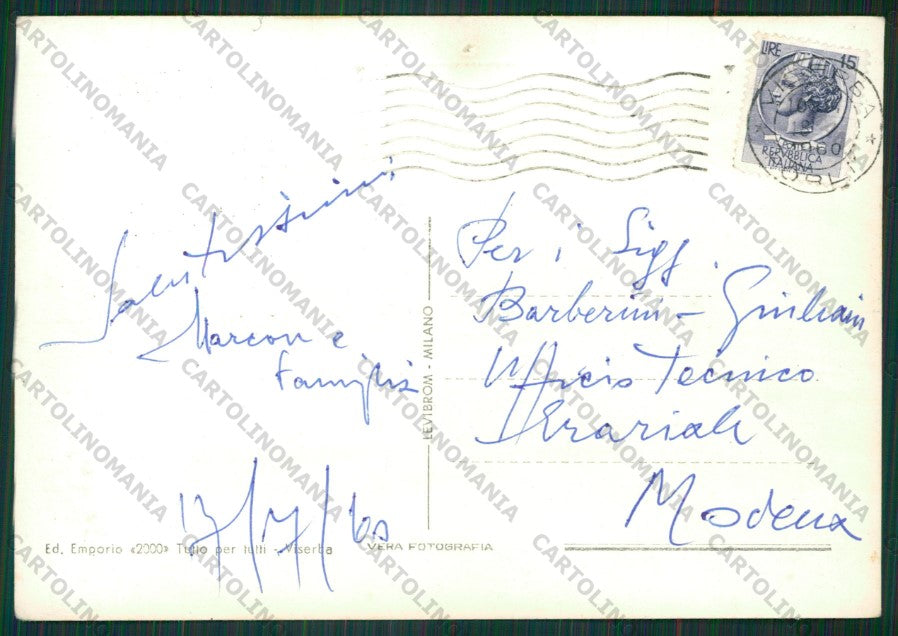 LIRE 15
REPVBBLICA
ITALIANA
VISERBA
1960
FORLI
Salutissimi
Marconi e
Famiglia
17/7/60
LEVIBROM - MILANO
Per i Sigg.
Barberini - Giuliani
Ufficio Tecnico
Erariale
Modena
Ed. Emporio «2000» Tutto per tutti - Viserba
VERA FOTOGRAFIA
CARTOLINOMANIA